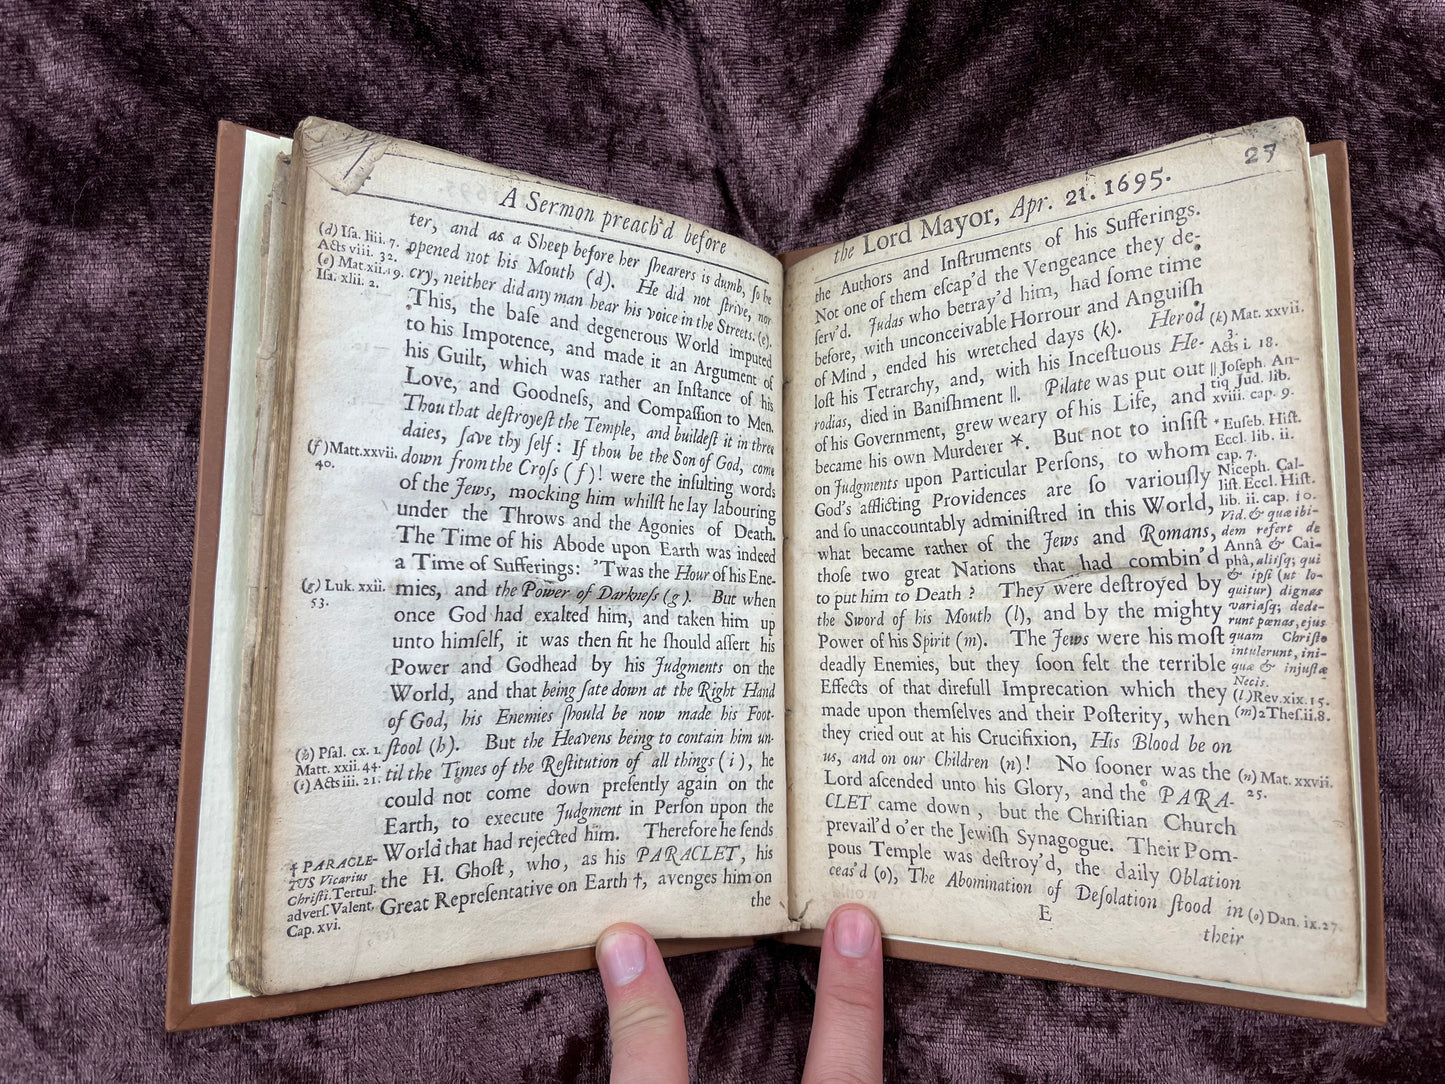 A Sermon preach'd before
ter, and as a Sheep before her ſhearers is dumb, ſo he
opened not his Mouth (d). He did not ſtrive, nor
cry, neither did any man hear his voice in the Streets. (e).
This, the baſe and degenerous World imputed
to his Impotence, and made it an Argument of
his Guilt, which was rather an Inſtance of his
Love, and Goodneſs, and Compaſſion to Men.
Thou that deſtroyeſt the Temple, and buildeſt it in three
daies, ſave thy ſelf: If thou be the Son of God, come
down from the Croſs (f)! were the inſulting words
of the Jews, mocking him whilſt he lay labouring
under the Throws and the Agonies of Death.
The Time of his Abode upon Earth was indeed
a Time of Sufferings: 'Twas the Hour of his Ene-
mies, and the Power of Darkneſs (g). But when
once God had exalted him, and taken him up
unto himſelf, it was then fit he ſhould aſſert his
Power and Godhead by his Judgments on the
World, and that being ſate down at the Right Hand
of God, his Enemies ſhould be now made his Foot-
ſtool (h). But the Heavens being to contain him un-
til the Times of the Reſtitution of all things (i), he
could not come down preſently again on the
Earth, to execute Judgment in Perſon upon the
World that had rejected him. Therefore he ſends
the H. Ghoſt, who, as his PARACLET, his
Great Repreſentative on Earth †, avenges him on
the
(d) Iſa. liii. 7.
Acts viii. 32.
(e) Mat. xii. 19.
Iſa. xlii. 2.
(f) Matt. xxvii.
40.
(g) Luk. xxii.
53.
(h) Pſal. cx. 1.
Matt. xxii. 44.
(i) Acts iii. 21.
† PARACLE-
TUS Vicarius
Chriſti. Tertul.
adverſ. Valent.
Cap. xvi.
27
the Lord Mayor, Apr. 21. 1695.
the Authors and Inſtruments of his Sufferings.
Not one of them eſcap'd the Vengeance they de-
ſerv'd. Judas who betray'd him, had ſome time
before, with unconceivable Horrour and Anguiſh
of Mind, ended his wretched days (k). Herod
loſt his Tetrarchy, and, with his Inceſtuous He-
rodias, died in Baniſhment ||. Pilate was put out
of his Government, grew weary of his Life, and
became his own Murderer *. But not to inſiſt
on Judgments upon Particular Perſons, to whom
God's afflicting Providences are ſo variouſly
and ſo unaccountably adminiſtred in this World,
what became rather of the Jews and Romans,
thoſe two great Nations that had combin'd
to put him to Death? They were deſtroyed by
the Sword of his Mouth (l), and by the mighty
Power of his Spirit (m). The Jews were his moſt
deadly Enemies, but they ſoon felt the terrible
Effects of that direfull Imprecation which they
made upon themſelves and their Poſterity, when
they cried out at his Crucifixion, His Blood be on
us, and on our Children (n)! No ſooner was the
Lord aſcended unto his Glory, and the PARA-
CLET came down, but the Chriſtian Church
prevail'd o'er the Jewiſh Synagogue. Their Pom-
pous Temple was deſtroy'd, the daily Oblation
ceas'd (o), The Abomination of Deſolation ſtood in
E
their
(k) Mat. xxvii.
3.
Acts i. 18.
|| Joſeph. An-
tiq. Jud. lib.
xviii. cap. 9.
* Euſeb. Hiſt.
Eccl. lib. ii.
cap. 7.
Niceph. Cal-
liſt. Eccl. Hiſt.
lib. ii. cap. 10.
Vid. & quæ ibi-
dem refert de
Annâ & Cai-
phâ, aliiſq; qui
& ipſi (ut lo-
quitur) dignas
variaſq; dede-
runt pœnas, ejus
quam Chriſto
intulerunt, ini-
quæ & injuſtæ
Necis.
(l) Rev. xix. 15.
(m) 2 Theſ. ii. 8.
(n) Mat. xxvii.
25.
(o) Dan. ix. 27.